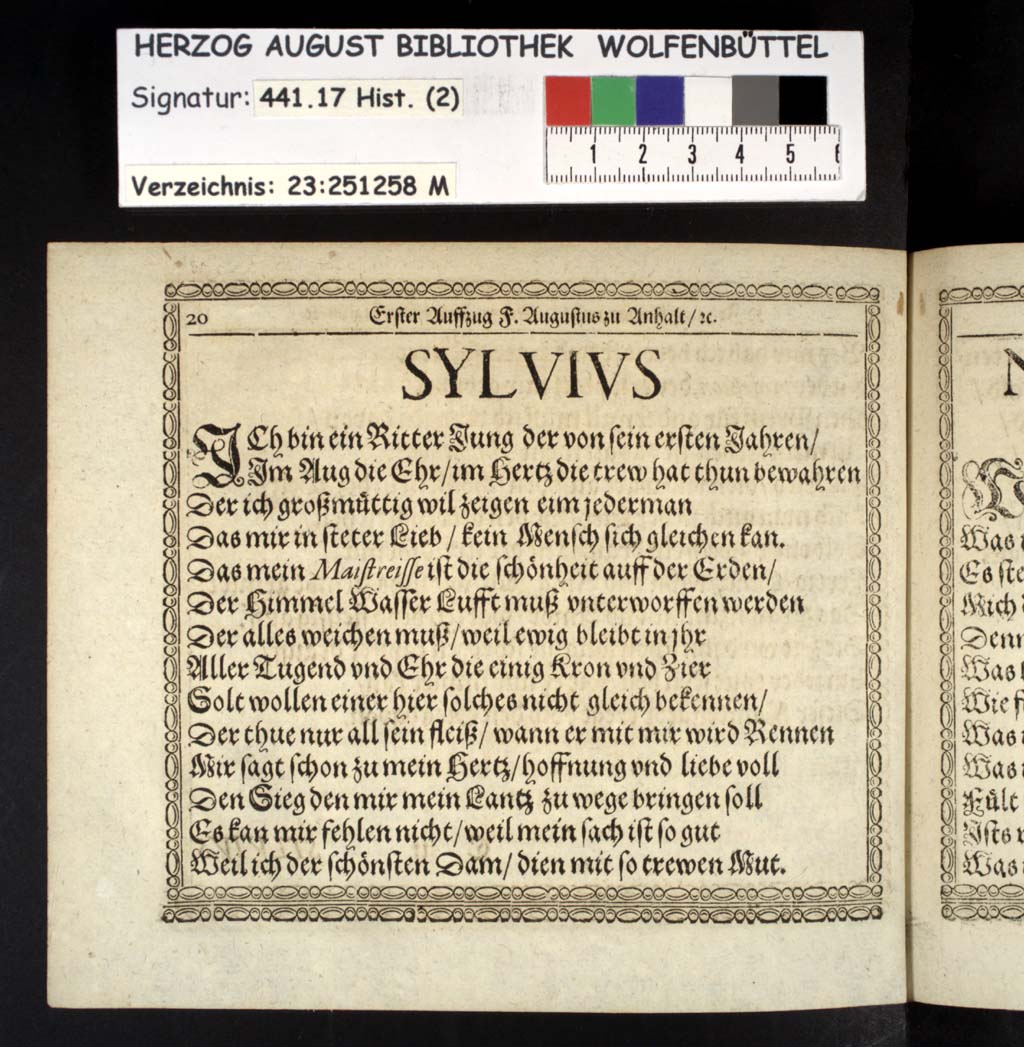 HERZOG AUGUST BIBLIOTHEK WOLFENBÜTTEL
Signatur: 441.17 Hist. (2)
1 2 3 4 5 6
Verzeichnis: 23:251258 M
20 Erster Auffzug F. Augustus zu Anhalt/ ꝛc.
SYLVIVS
ICh bin ein Ritter Jung der von sein ersten Jahren/
Im Aug die Ehr/ im Hertz die trew hat thun bewahren
Der ich großmüttig wil zeigen eim jederman
Das mir in steter Lieb / kein Mensch sich gleichen kan.
Das mein Maistreisse ist die schönheit auff der Erden/
Der Himmel Wasser Lufft muß vnterworffen werden
Der alles weichen muß/ weil ewig bleibt in jhr
Aller Tugend vnd Ehr die einig Kron vnd Zier
Solt wollen einer hier solches nicht gleich bekennen/
Der thue nur all sein fleiß/ wann er mit mir wird Rennen
Mir sagt schon zu mein Hertz/ hoffnung vnd liebe voll
Den Sieg den mir mein Lantz zu wege bringen soll
Es kan mir fehlen nicht/ weil mein sach ist so gut
Weil ich der schönsten Dam/ dien mit so trewen Mut.
N
Was
Es ste
Mich
Denn
Was
Wie
Was
Was
Fült
Ists
Was